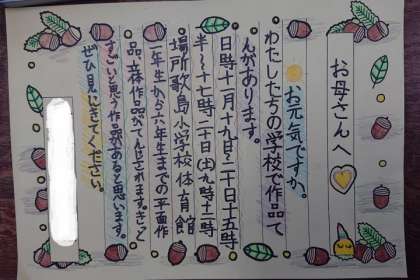 お母さんへ
お元気ですか。
わたしたちの学校で作品て
んがあります。
日時十一月十九日〜二十日十五時
半〜十七時二十日(土)九時十二
場所歌島小学校体育館
一年生から六年生までの平面作
品、立体作品がてんじされます。きっと
すごいと思う作品があると思います。
ぜひ見にきてください。